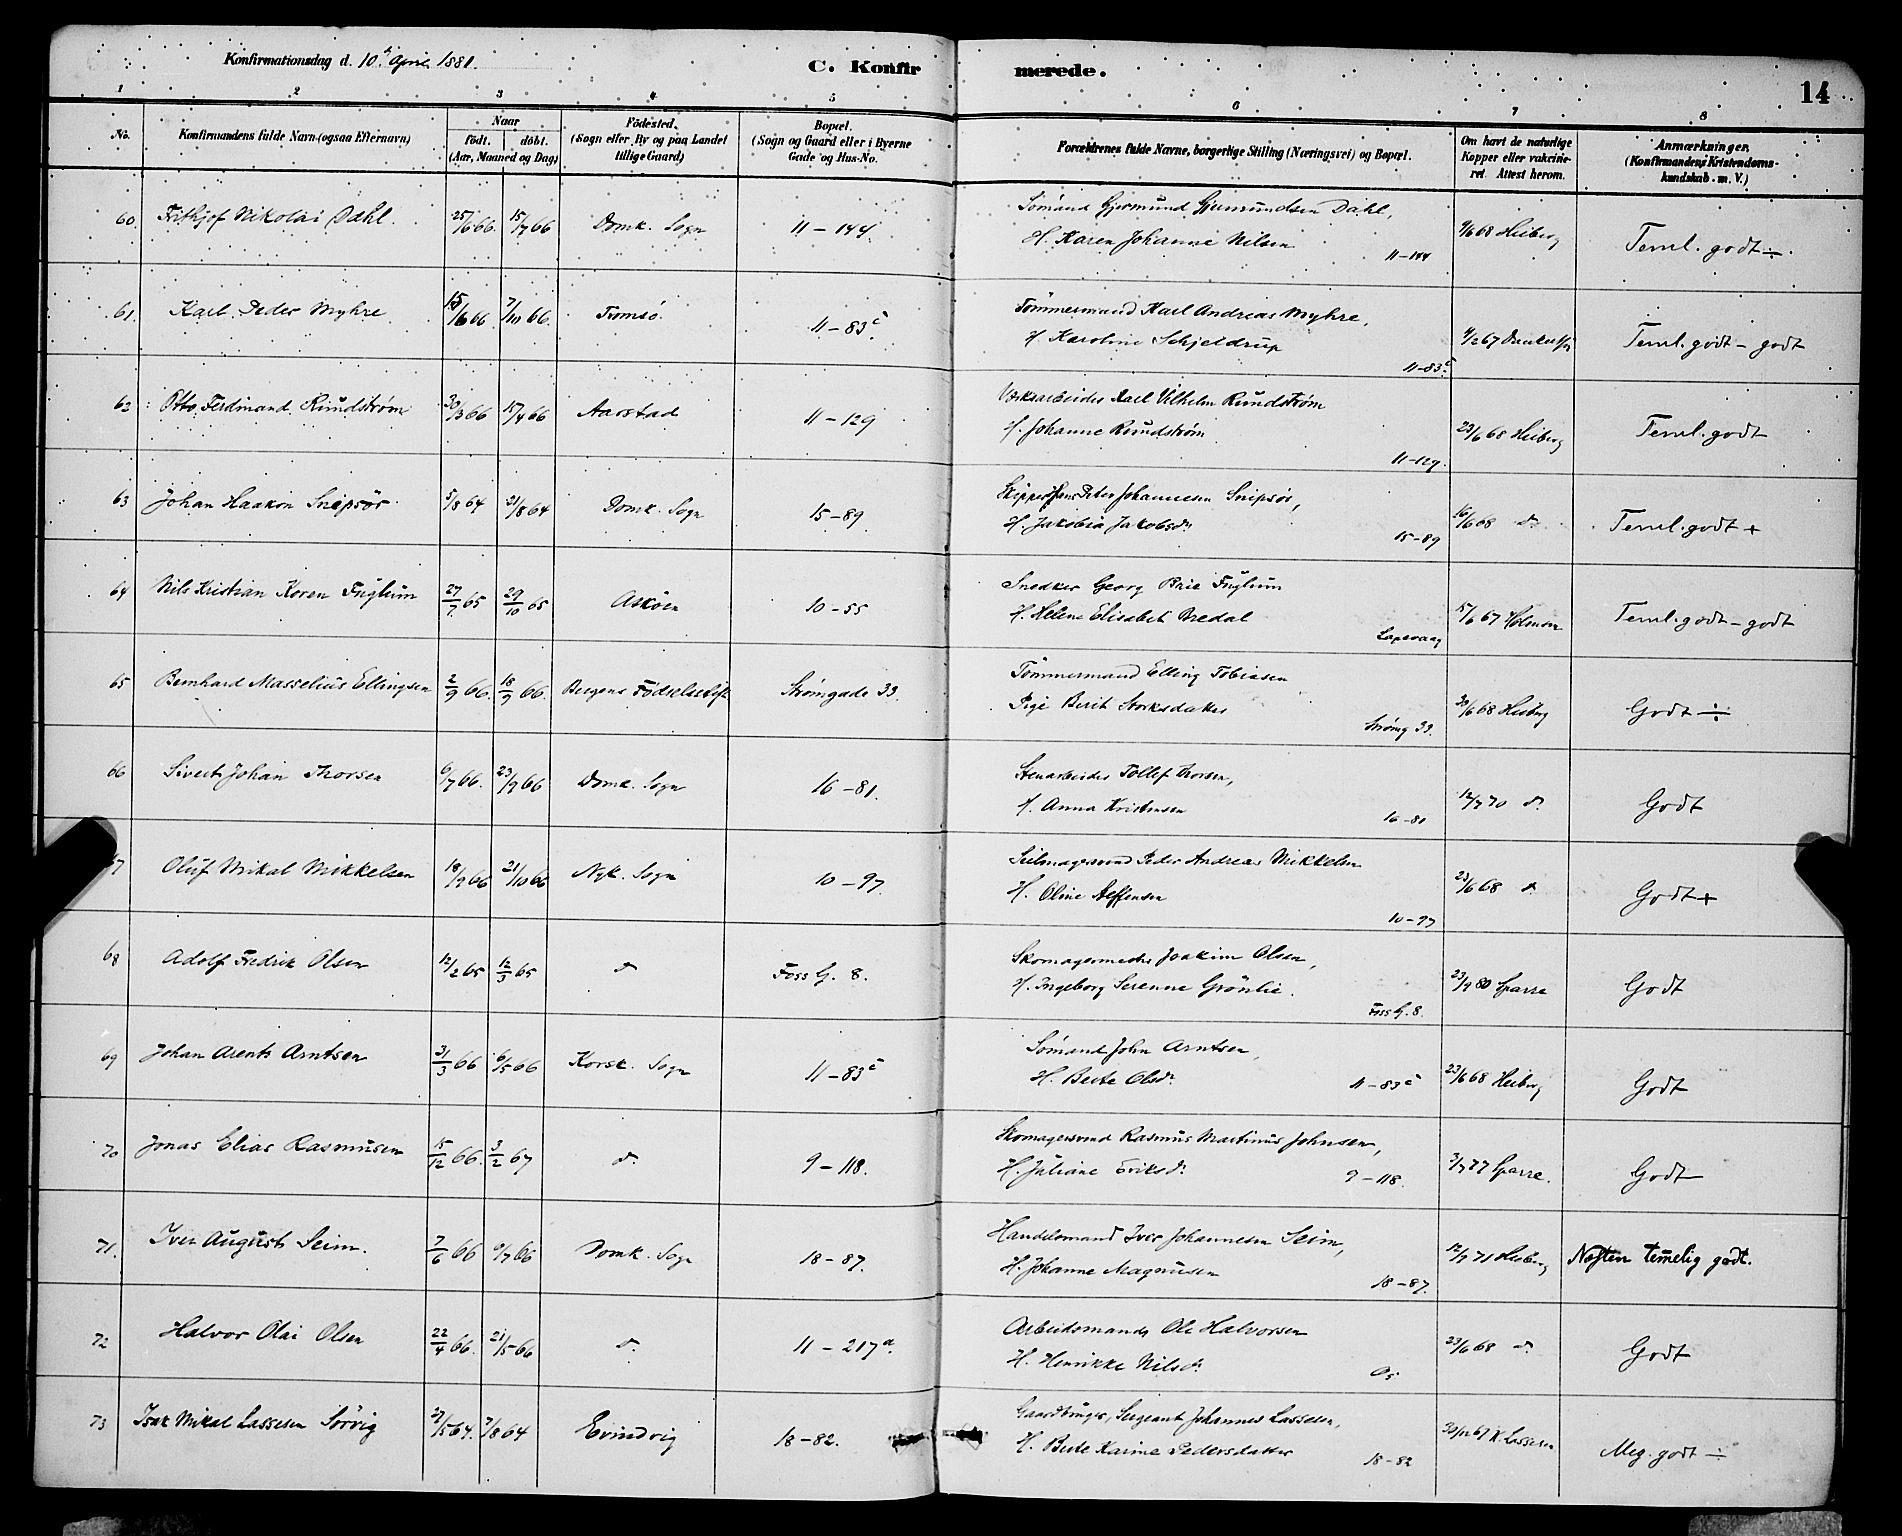 Konfirmationsdag d. 10de April 1881.
C. Konfirmerede.
14
1 2 3 4 5 6 7 8
No.
Konfirmandens fulde Navn (ogsaa Efternavn)
Naar
født. døbt.
(Aar, Maaned og Dag)
Fødested.
(Sogn eller By og paa Landet tillige Gaard)
Bopæl.
(Sogn og Gaard eller i Byerne Gade og Hus-No.
Forældrenes fulde Navne, borgerlige Stilling (Næringsvei) og Bopæl.
Om havt de naturlige Kopper eller vaksineret. Attest herom.
Anmærkninger.
(Konfirmandens Kristendomskundskab m. V.)
60 Frithjof Nikolai Dahl. 25/6 66. 15/7 66 Domk. Sogn 11 – 144.
Sømand Gjermund Gjermundsen Dahl,
H. Karen Johanne Nilsen 11–144
9/6 68 Heiberg Teml. godt ÷
61. Karl Peder Myhre 15/6 66 7/10 66. Tromsø 11 – 83c
Tømmermand Karl Andreas Myhre,
H. Karoline Schjeldrup 11–83c
4/2 67 Teml. godt – godt
62 Otto Ferdinand Rundstrøm 30/3 66 15/4 66 Aarstad 11 – 129
Værksarbeider Karl Vilhelm Rundstrøm
H. Johanne Rundstrøm 11–129.
23/6 68 Heiberg Teml. godt
63 Johan Haakon Snipsør 5/8 64 21/8 64 Domk. Sogn 15–89.
Skipper Jens Peter Johannesen Snipsør,
H. Jakobia Jakobsdr 15–89
16/6 68 do Teml. godt +
64 Nils Kristian Koren Fuglum 27/7 65 29/10 65 Askøen 10–55
Snedker Georg Brie Fuglum
H. Helene Elisabet Nedal Laxevaag
15/6 67 Teml. godt – godt
65 Bernhard Masselius Ellingsen 2/9 66. 18/9 66. Bergens Fødselsstift. Strømgade 33.
Tømmermand Elling Tobiasen
Pige Berit Storksdatter Strømg 33.
30/6 68 Heiberg Godt ÷
66 Sivert Johan Thorsen 6/7 66. 23/9 66 Domk. Sogn 16–81.
Stenarbeider Tollef Thorsen,
H. Anna Kristensen 16–81
12/7 70 do Godt
67 Oluf Mikal Mikkelsen 18/9 66 21/10 66 Nyk. Sogn 10–97.
Seilmagersvend Peder Andreas Mikkelsen
H. Oline Steffensen 10–97
23/6 68 do Godt +
68 Adolf Fredrik Olsen 12/2 65 12/3 65 do Foss G. 8.
Skomagermester Joakim Olsen,
H. Ingeborg Serenne Grønlie. Foss G. 8.
23/9 80 Sparre Godt
69 Johan Arents Arntsen 31/3 66 6/5 66 Korsk. Sogn 11–83c
Sømand John Arntsen,
H. Berte Olsdr. 11–83c
23/6 68 Heiberg Godt
70 Jonas Elias Rasmusen 15/12 66. 3/2 67 do 9–118.
Skomagersvend Rasmus Martinus Johnsen,
H. Juliane Eriksdr 9–118.
3/7 77 Sparre. Godt
71. Iver August Seim. 7/6 66 9/7 66 Domk. Sogn 18–87.
Handelsmand Iver Johannesen Seim,
H. Johanne Magnusen 18–87.
12/7 71 Heiberg Næsten temelig godt.
72 Halvor Olai Olsen 22/4 66. 21/5 66 do 11–217a.
Arbeidsmand Ole Halvorsen
H. Henrikke Nilsdr. Os
23/6 68 do Godt
73 Isak Mikal Lassesen Sørvig 27/5 64. 7/8 64 Evindvig 18–82.
Gaardbruger, Sergeant Johannes Lassesen,
H. Berte Karine Pedersdatter 18–82
30/12 67 K. Lassesen Meg. godt ÷